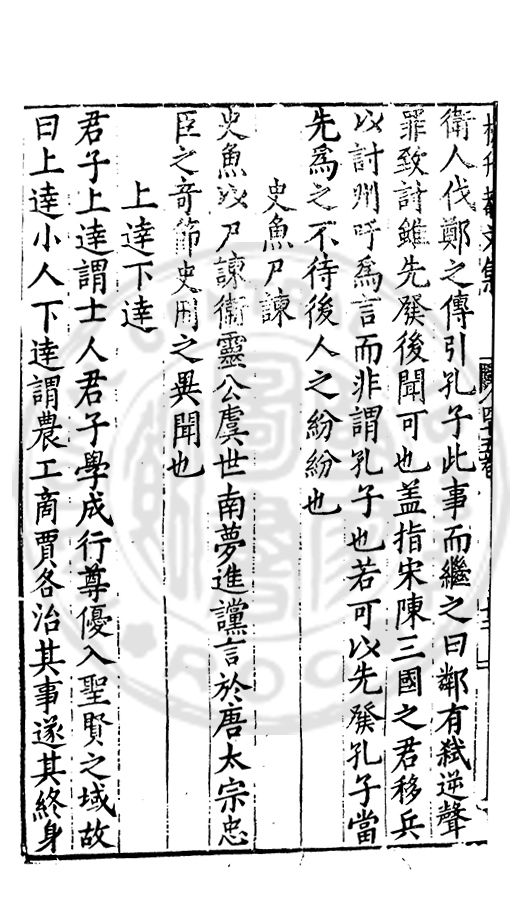 衛人伐鄭之傳引孔子此事而繼之曰鄰有弑逆聲
罪致討雖先發後聞可也盖指宋陳三國之君移兵
以討州吁爲言而非謂孔子也若可以先發孔子當
先爲之不待後人之紛紛也
史魚尸諫
史魚以尸諫衛靈公虞世南夢進讜言於唐太宗忠
臣之竒節史册之異聞也
上達下達
君子上達謂士人君子學成行尊優入聖賢之域故
曰上達小人下達謂農工商賈各治其事遂其終身